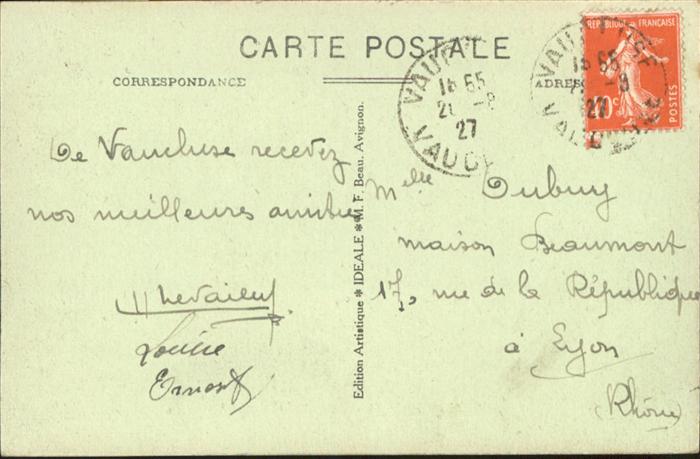 CARTE POSTALE
CORRESPONDANCE
De Vaucluse recevez
nos meilleures amitiés
Louise
Ernest
Edition Artistique * IDEALE * M. F. Beau. Avignon.
VAUCLUSE
15 65
2 -8
27
VAUCLUSE
RÉPUBLIQUE FRANÇAISE
POSTES
ADRESSE
Melle Dubuy
maison Beaumont
17, rue de la République
à Lyon
(Rhône)